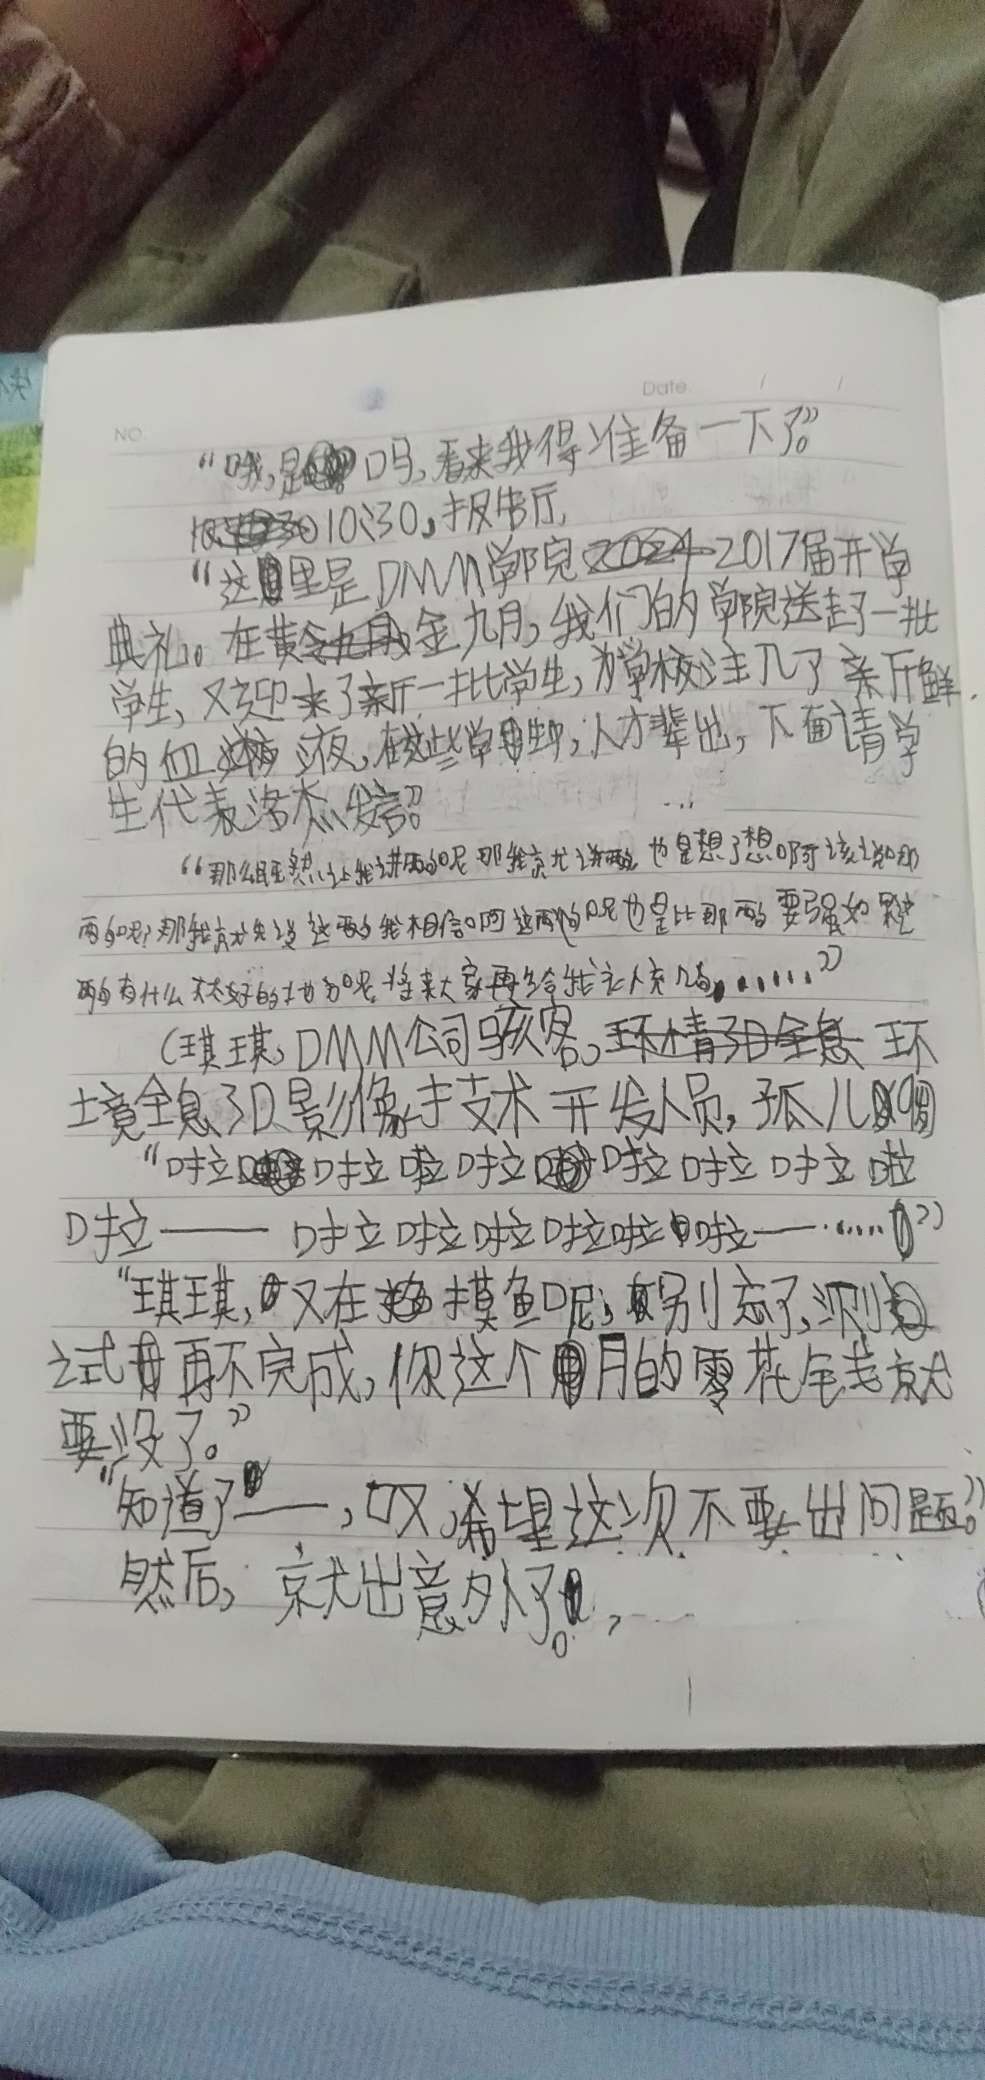 Date / /
NO.
“哦,是吗,看来我得准备一下了。”
10:30,报告厅,
“这里是DMM学院2017届开学
典礼。在金九月,我们的学院送走了一批
学生,又迎来了新一批学生,为学校注入了新鲜
的血液,在这些学生中,人才辈出,下面请学
生代表洛杰发言。”
“那么既然让我讲两句呢 那我就讲两句 也是想了想啊 该说哪
两句呢?那我就先说这两句 我相信啊这两句呢也是比那两句要强 如果这
两句有什么不太好的地方呢 将来大家再给我补充几句,……”
(琪琪,DMM公司骇客,环
境全息3D影像技术开发人员,孤儿
“啦啦啦啦啦啦啦啦啦
啦——啦啦啦啦啦啦——……”
“琪琪,又在摸鱼呢,别忘了,测
试再不完成,你这个月的零花钱就
要没了。”
“知道了——,叹,希望这次不要出问题。”
然后,就出意外了。